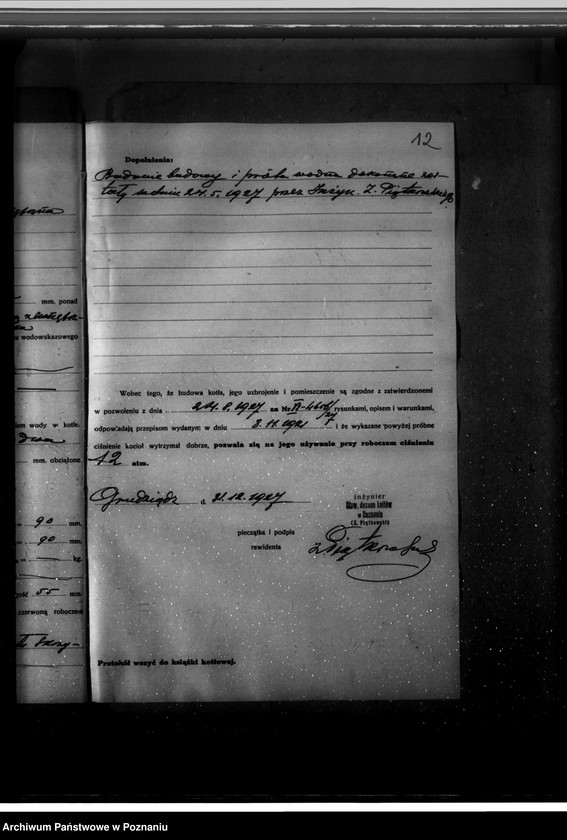 12
Dopełnienia:
Badanie budowy i próba wodna dokonane zo-
stały w dniu 24.5.1927 przez Inżyn. Z. Piątkowskiego
mm. ponad
wodowskazowego
Wobec tego, że budowa kotła, jego uzbrojenie i pomieszczenie są zgodne z zatwierdzonemi
w pozwoleniu z dnia 24.8.1927 za Nr rysunkami, opisem i warunkami,
odpowiadają przepisom wydanym w dniu 8.11.1921 r i że wykazane powyżej próbne
em wody w kotle.
ciśnienie kocioł wytrzymał dobrze, pozwala się na jego używanie przy roboczem ciśnieniu
mm. obciążone
12 atm.
Grudziądz d. 31.12.1927
inżynier
Stow. dozoru kotłów
w Poznaniu
(Z. Piątkowski)
90 mm.
pieczątka i podpis
rewidenta
Z Piątkowski
90 mm.
kg.
55 mm.
czerwoną roboczem
Protokół wszyć do książki kotłowej.
Archiwum Państwowe w Poznaniu